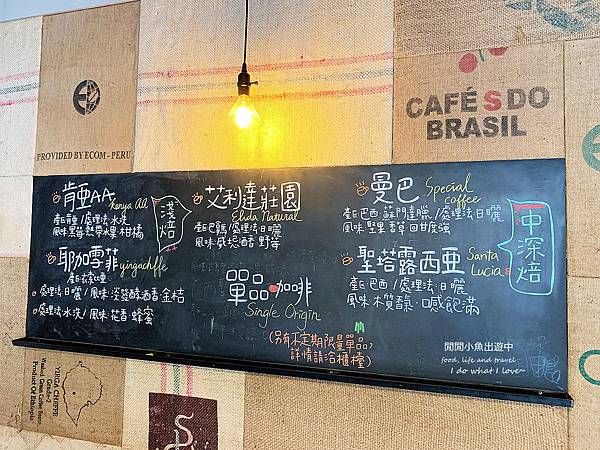 PROVIDED BY ECOM - PERU
CAFÉS DO
BRASIL
肯亞AA
Kenya AA
產區:肯亞/處理法:水洗
風味:黑莓.熱帶水果.柑橘
淺焙
耶加雪菲
yingachffe
處理法:日曬/風味:淡發酵酒香.金桔
處理法:水洗/風味:花香.蜂蜜
艾利達莊園
Elida Natural
產區:巴拿馬/處理法:日曬
單品咖啡
Single Origin
(另有不定期限量單品)
詳情請洽櫃檯
曼巴
Special
coffee
產區:巴西.蘇門達臘/處理法:日曬
風味:堅果.香草.回甘度強
聖塔露西亞
Santa
Lucia
產區:巴西/處理法:日曬
中深焙
閒閒小魚出遊中
food, life and travel
I do what I love~
YIRGA CHEFFE
Grade-2
Product Of Ethiopia